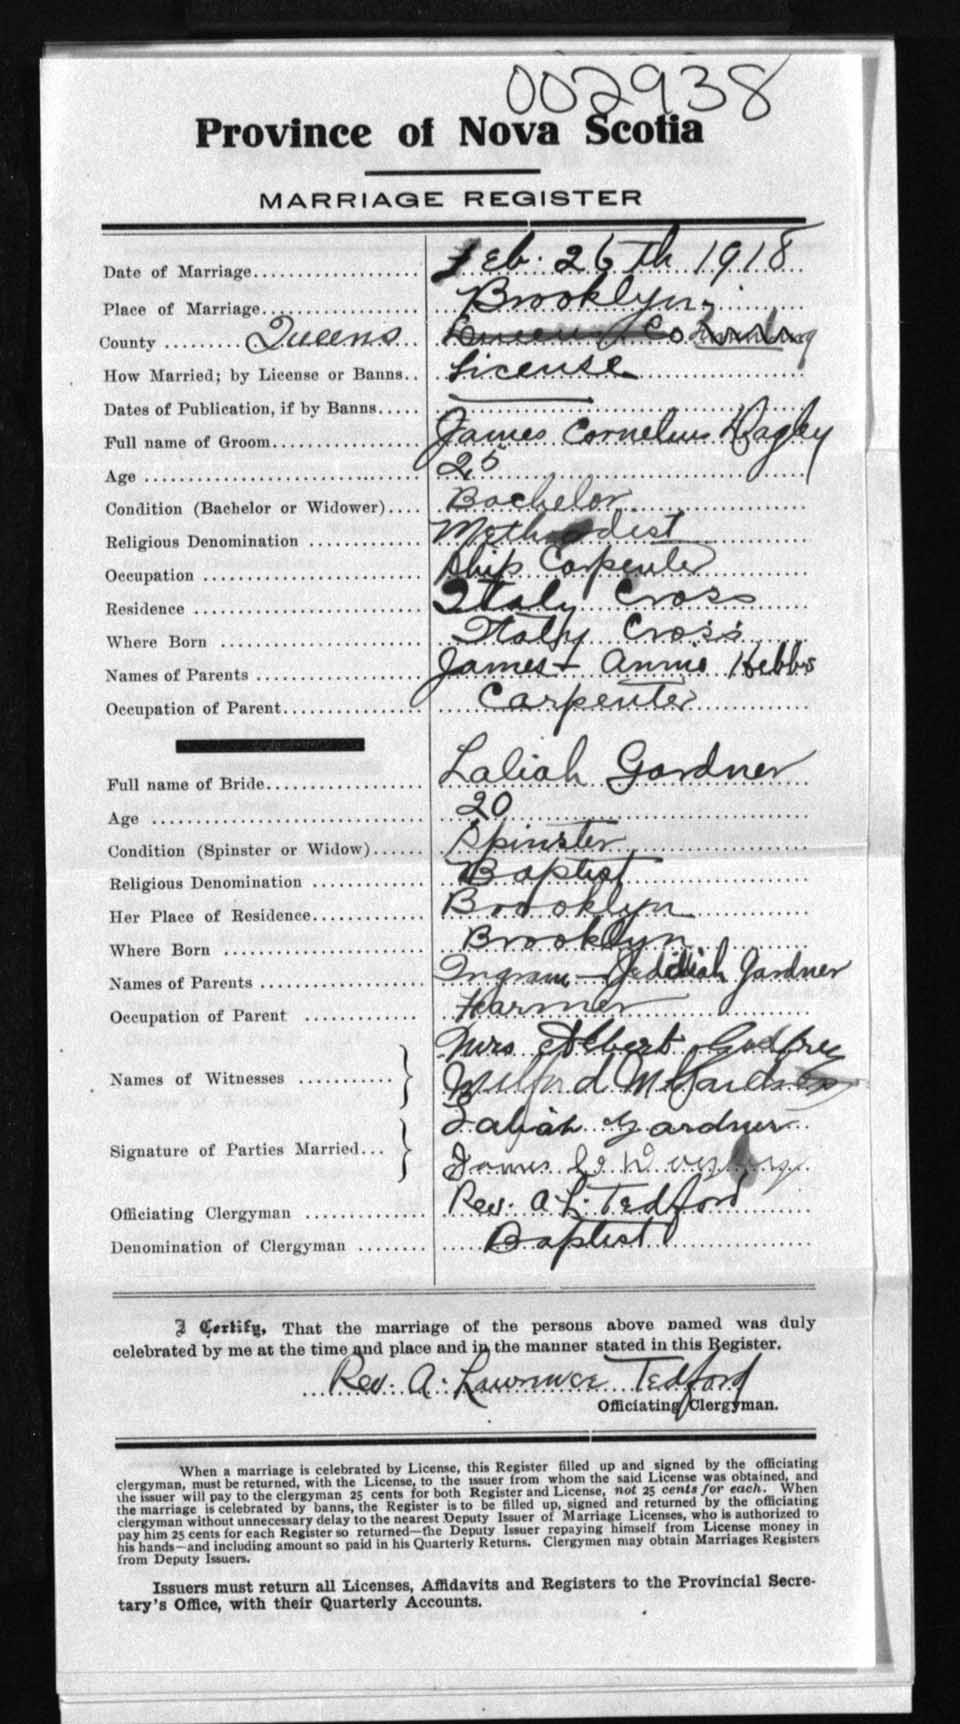 002938
Province of Nova Scotia
MARRIAGE REGISTER
Date of Marriage.................. Feb. 26th 1918
Place of Marriage.................. Brooklyn
County ......... Queens
How Married; by License or Banns.. License
Dates of Publication, if by Banns.....
Full name of Groom.................. James Cornelius
Age .................. 25
Condition (Bachelor or Widower).... Bachelor
Religious Denomination ............ Methodist
Occupation .................. Ship Carpenter
Residence .................. Italy Cross
Where Born .................. Italy Cross
Names of Parents .................. James + Annie Hebbs
Occupation of Parent............... Carpenter
Full name of Bride.................. Laliah Gardner
Age .................. 20
Condition (Spinster or Widow)...... Spinster
Religious Denomination ............ Baptist
Her Place of Residence............. Brooklyn
Where Born .................. Brooklyn
Names of Parents .................. Ingram – Jedidiah Gardner
Occupation of Parent ............ Farmer
Names of Witnesses ............ Mrs Albert Godfrey
Wilford M Gardner
Signature of Parties Married... Laliah Gardner
James C.
Officiating Clergyman ............ Rev. A L. Tedford
Denomination of Clergyman ........ Baptist
I Certify, That the marriage of the persons above named was duly
celebrated by me at the time and place and in the manner stated in this Register.
Rev. A. Lawrence Tedford
Officiating Clergyman.
When a marriage is celebrated by License, this Register filled up and signed by the officiating
clergyman, must be returned, with the License, to the issuer from whom the said License was obtained, and
the issuer will pay to the clergyman 25 cents for both Register and License, not 25 cents for each. When
the marriage is celebrated by banns, the Register is to be filled up, signed and returned by the officiating
clergyman without unnecessary delay to the nearest Deputy Issuer of Marriage Licenses, who is authorized to
pay him 25 cents for each Register so returned—the Deputy Issuer repaying himself from License money in
his hands—and including amount so paid in his Quarterly Returns. Clergymen may obtain Marriages Registers
from Deputy Issuers.
Issuers must return all Licenses, Affidavits and Registers to the Provincial Secre-
tary's Office, with their Quarterly Accounts.